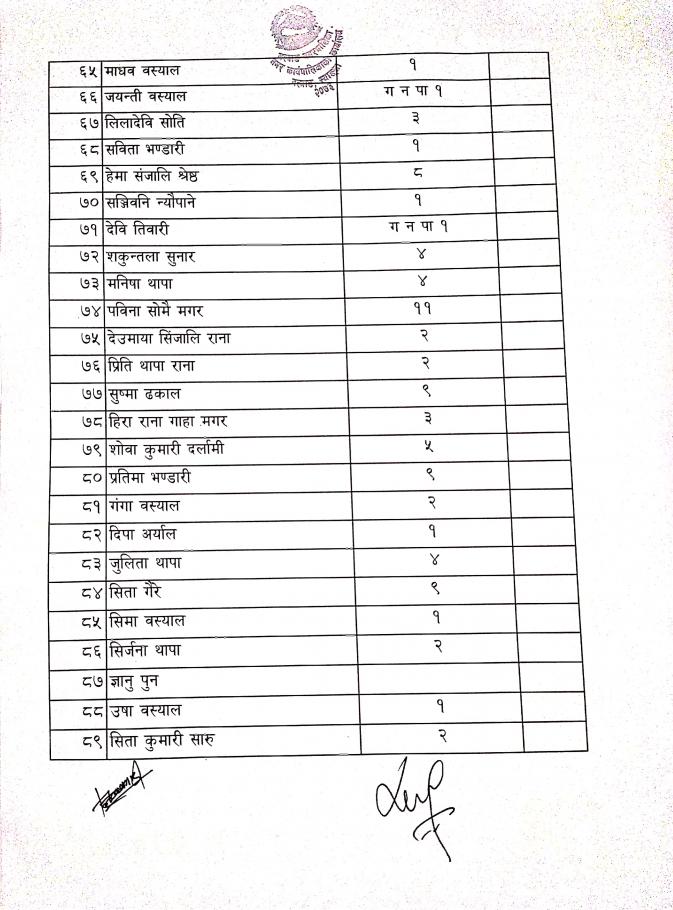 गल्याङ नगरपालिका
नगर कार्यपालिकाको कार्यालय
गल्याङ, स्याङ्जा
२०७३
६५ माधव वस्याल १
६६ जयन्ती वस्याल ग न पा १
६७ लिलादेवि सोति ३
६८ सविता भण्डारी १
६९ हेमा संजालि श्रेष्ठ ८
७० सञ्जिवनि न्यौपाने १
७१ देवि तिवारी ग न पा १
७२ शकुन्तला सुनार ४
७३ मनिषा थापा ४
७४ पविना सोमै मगर ११
७५ देउमाया सिंजालि राना २
७६ प्रिति थापा राना २
७७ सुष्मा ढकाल ९
७८ हिरा राना गाहा मगर ३
७९ शोवा कुमारी दर्लामी ५
८० प्रतिमा भण्डारी ९
८१ गंगा वस्याल २
८२ दिपा अर्याल १
८३ जुलिता थापा ४
८४ सिता गैरे ९
८५ सिमा वस्याल १
८६ सिर्जना थापा २
८७ ज्ञानु पुन
८८ उषा वस्याल १
८९ सिता कुमारी सारु २